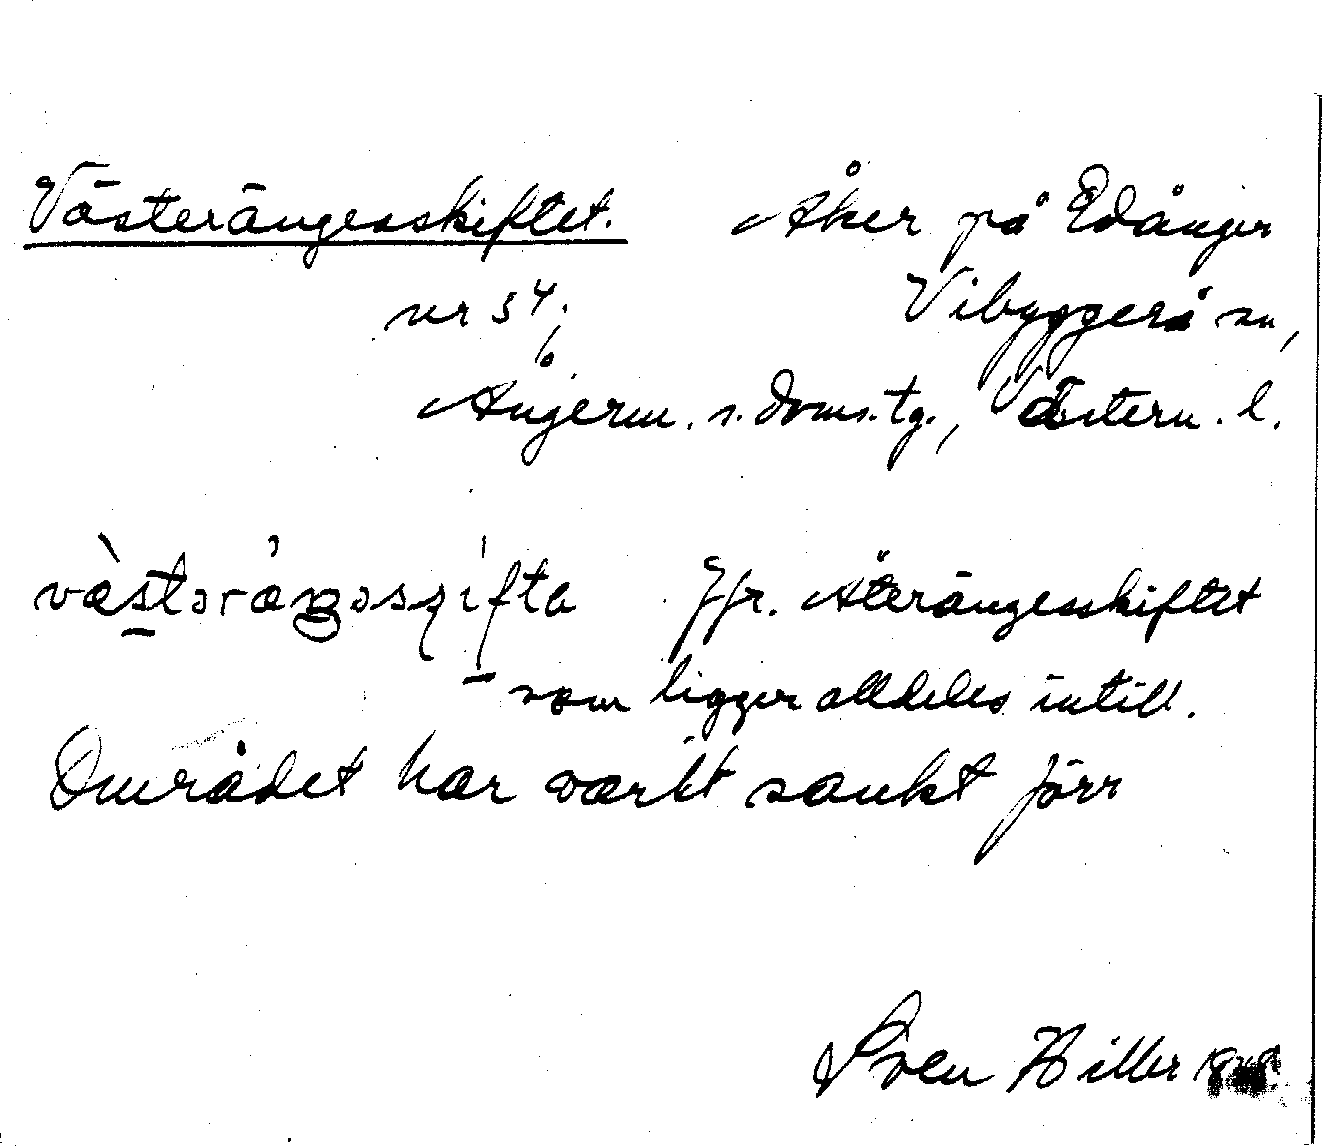 Västerängesskiftet. Åker på Edånger
nr 54; Vibyggerå sn,
Ångerm. s. doms. tg., Västern. l.
væ̀stəræŋəsʂifta Jfr. Återängesskiftet
som ligger alldeles intill.
Området har varit sankt förr
Sven Hiller